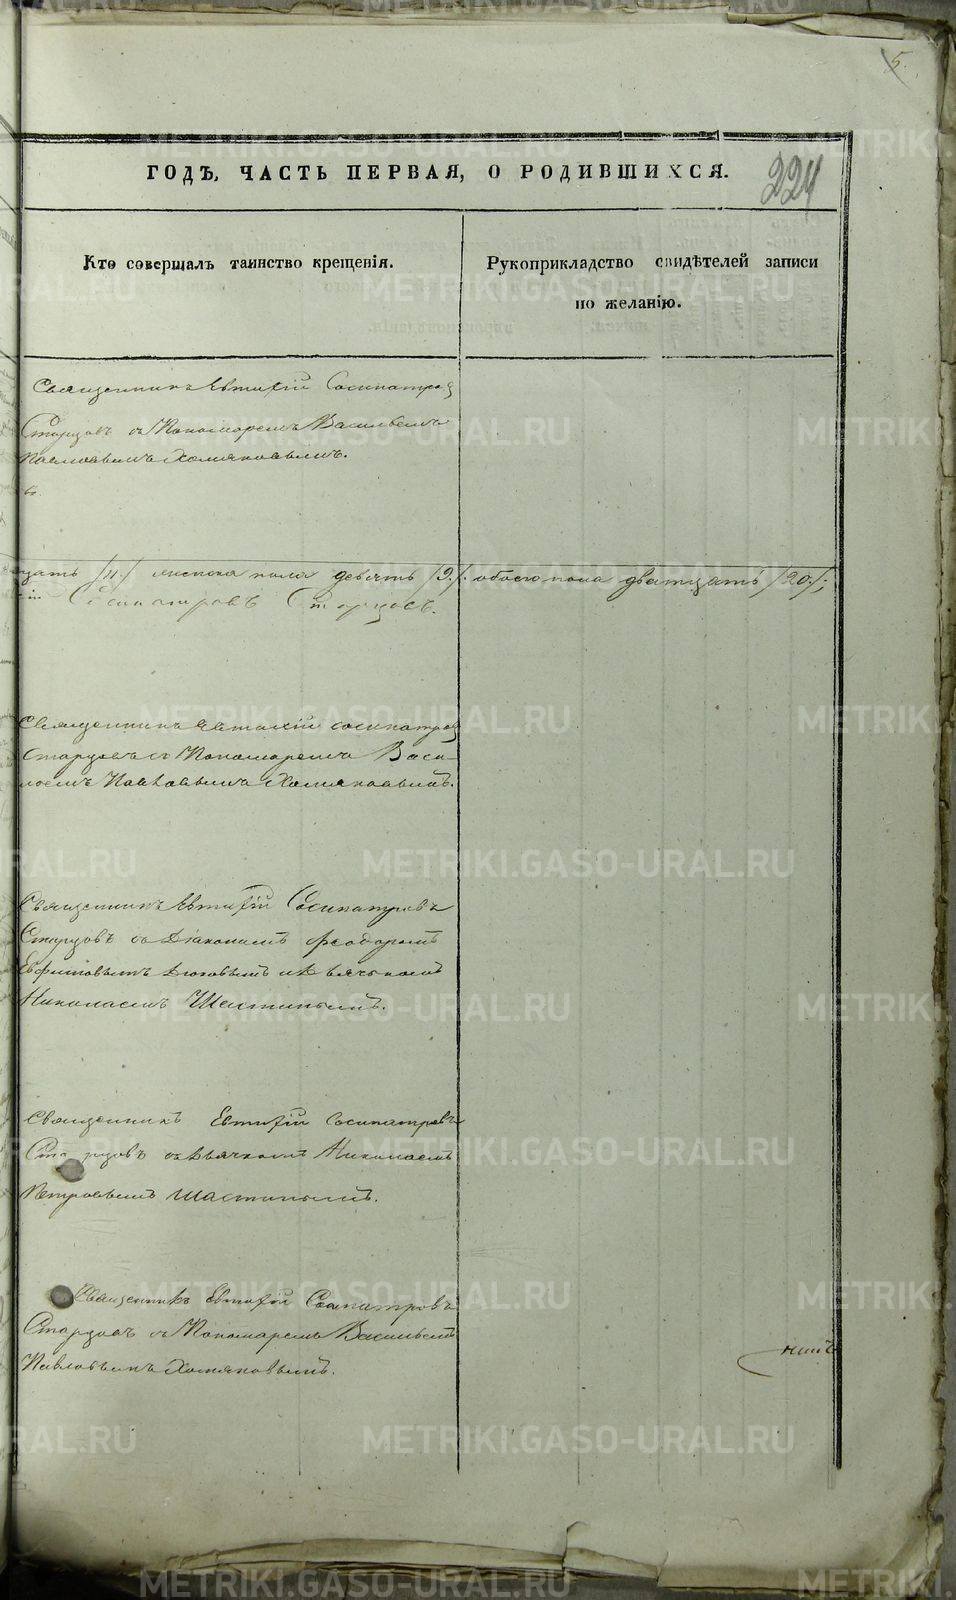 5.
224
ГОДЪ, ЧАСТЬ ПЕРВАЯ, О РОДИВШИХСЯ.
Кто совершалъ таинство крещенія.
Рукоприкладство свидѣтелей записи
по желанію.
Священникъ Евтихій Сосипатров
Старцовъ съ Пономаремъ Васильемъ
Павловымъ Хомяковымъ.
цать /11./ женска пола девять /9./. обоего пола дватцать /20./;
Сосипатровъ Старцовъ.
Священникъ Евтихій Сосипатров
Старцовъ съ Пономаремъ Васи-
льемъ Павловымъ Хомяковымъ.
Священникъ Евтихій Сосипатровъ
Старцовъ съ Діакономъ Феодоромъ
дьячкомъ
Николаемъ Шастинымъ.
Священникъ Евтихій Сосипатровъ
Старцовъ съ дьячкомъ Николаемъ
Петровымъ Шастинымъ.
Священникъ Евтихій Сосипатровъ
Старцовъ съ Пономаремъ Васильемъ
Павловымъ Хомяковымъ.
METRIKI.GASO-URAL.RU